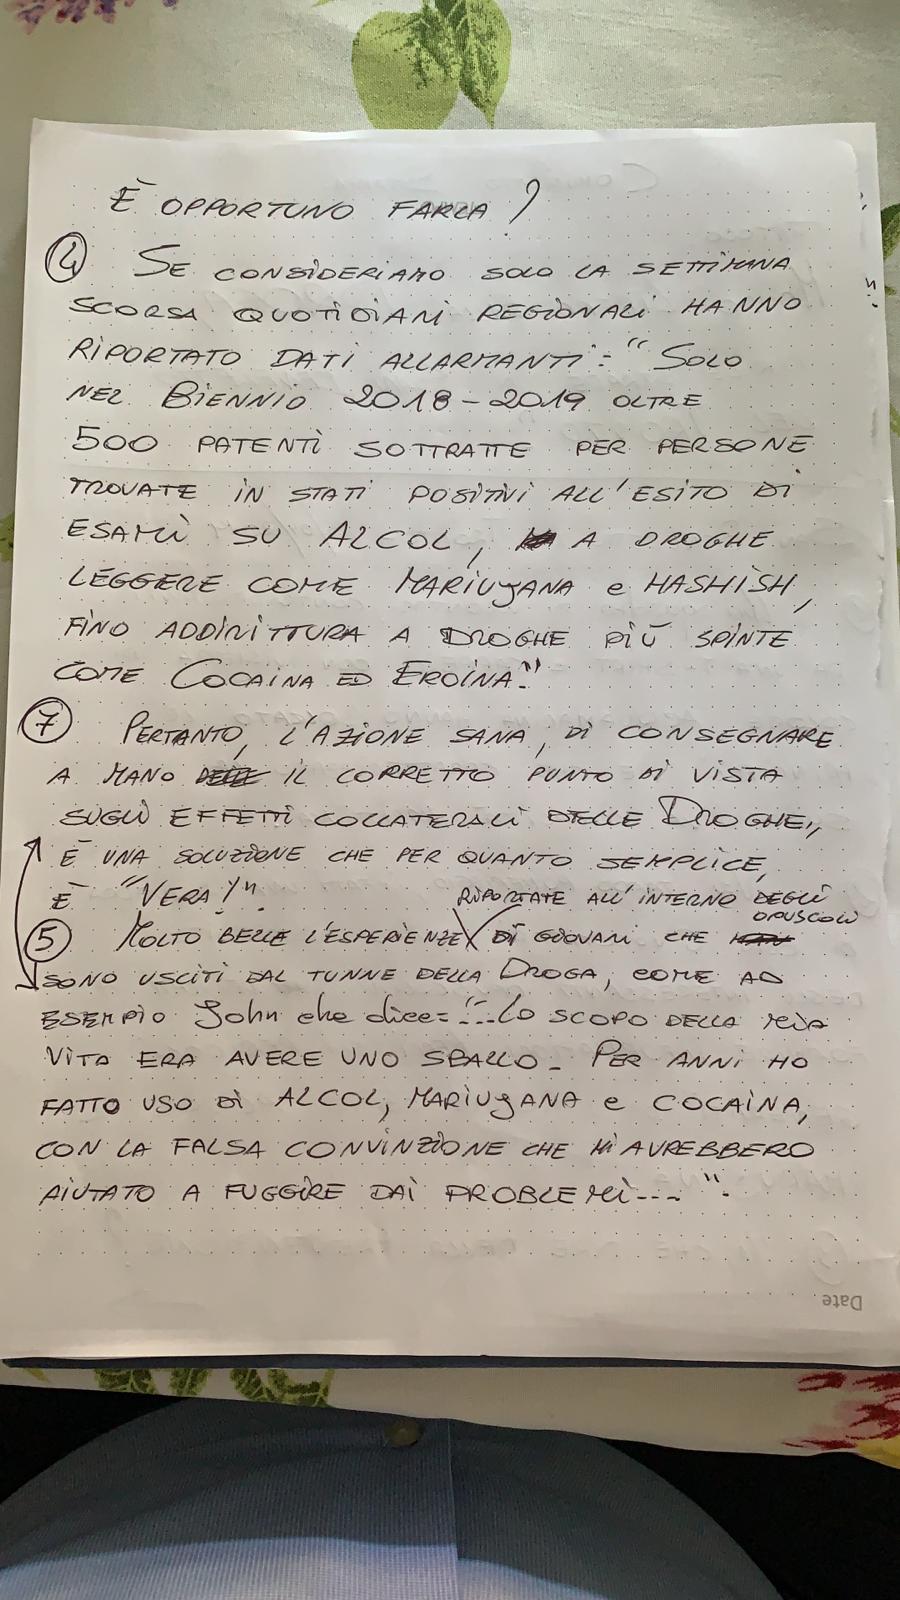 È OPPORTUNO FARLA?
4 SE CONSIDERIAMO SOLO LA SETTIMANA
SCORSA QUOTIDIANI REGIONALI HANNO
RIPORTATO DATI ALLARMANTI: "SOLO
NEL BIENNIO 2018-2019 OLTRE
500 PATENTI SOTTRATTE PER PERSONE
TROVATE IN STATI POSITIVI ALL'ESITO DI
ESAMI SU ALCOL, A DROGHE
LEGGERE COME MARIUJANA e HASHISH,
FINO ADDIRITTURA A DROGHE PIÙ SPINTE
COME COCAINA ED EROINA."
7 PERTANTO, L'AZIONE SANA, DI CONSEGNARE
A MANO IL CORRETTO PUNTO DI VISTA
SUGLI EFFETTI COLLATERALI DELLE DROGHE,
È UNA SOLUZIONE CHE PER QUANTO SEMPLICE,
È "VERA!".
RIPORTATE ALL'INTERNO DEGLI
OPUSCOLI
5 MOLTO BELLE L'ESPERIENZE DI GIOVANI CHE
SONO USCITI DAL TUNNE DELLA DROGA, COME AD
ESEMPIO John che dice: "...Lo SCOPO DELLA MIA
VITA ERA AVERE UNO SBALLO. PER ANNI HO
FATTO USO DI ALCOL, MARIUJANA e COCAINA,
CON LA FALSA CONVINZIONE CHE MI AVREBBERO
AIUTATO A FUGGIRE DAI PROBLEMI...".
Date